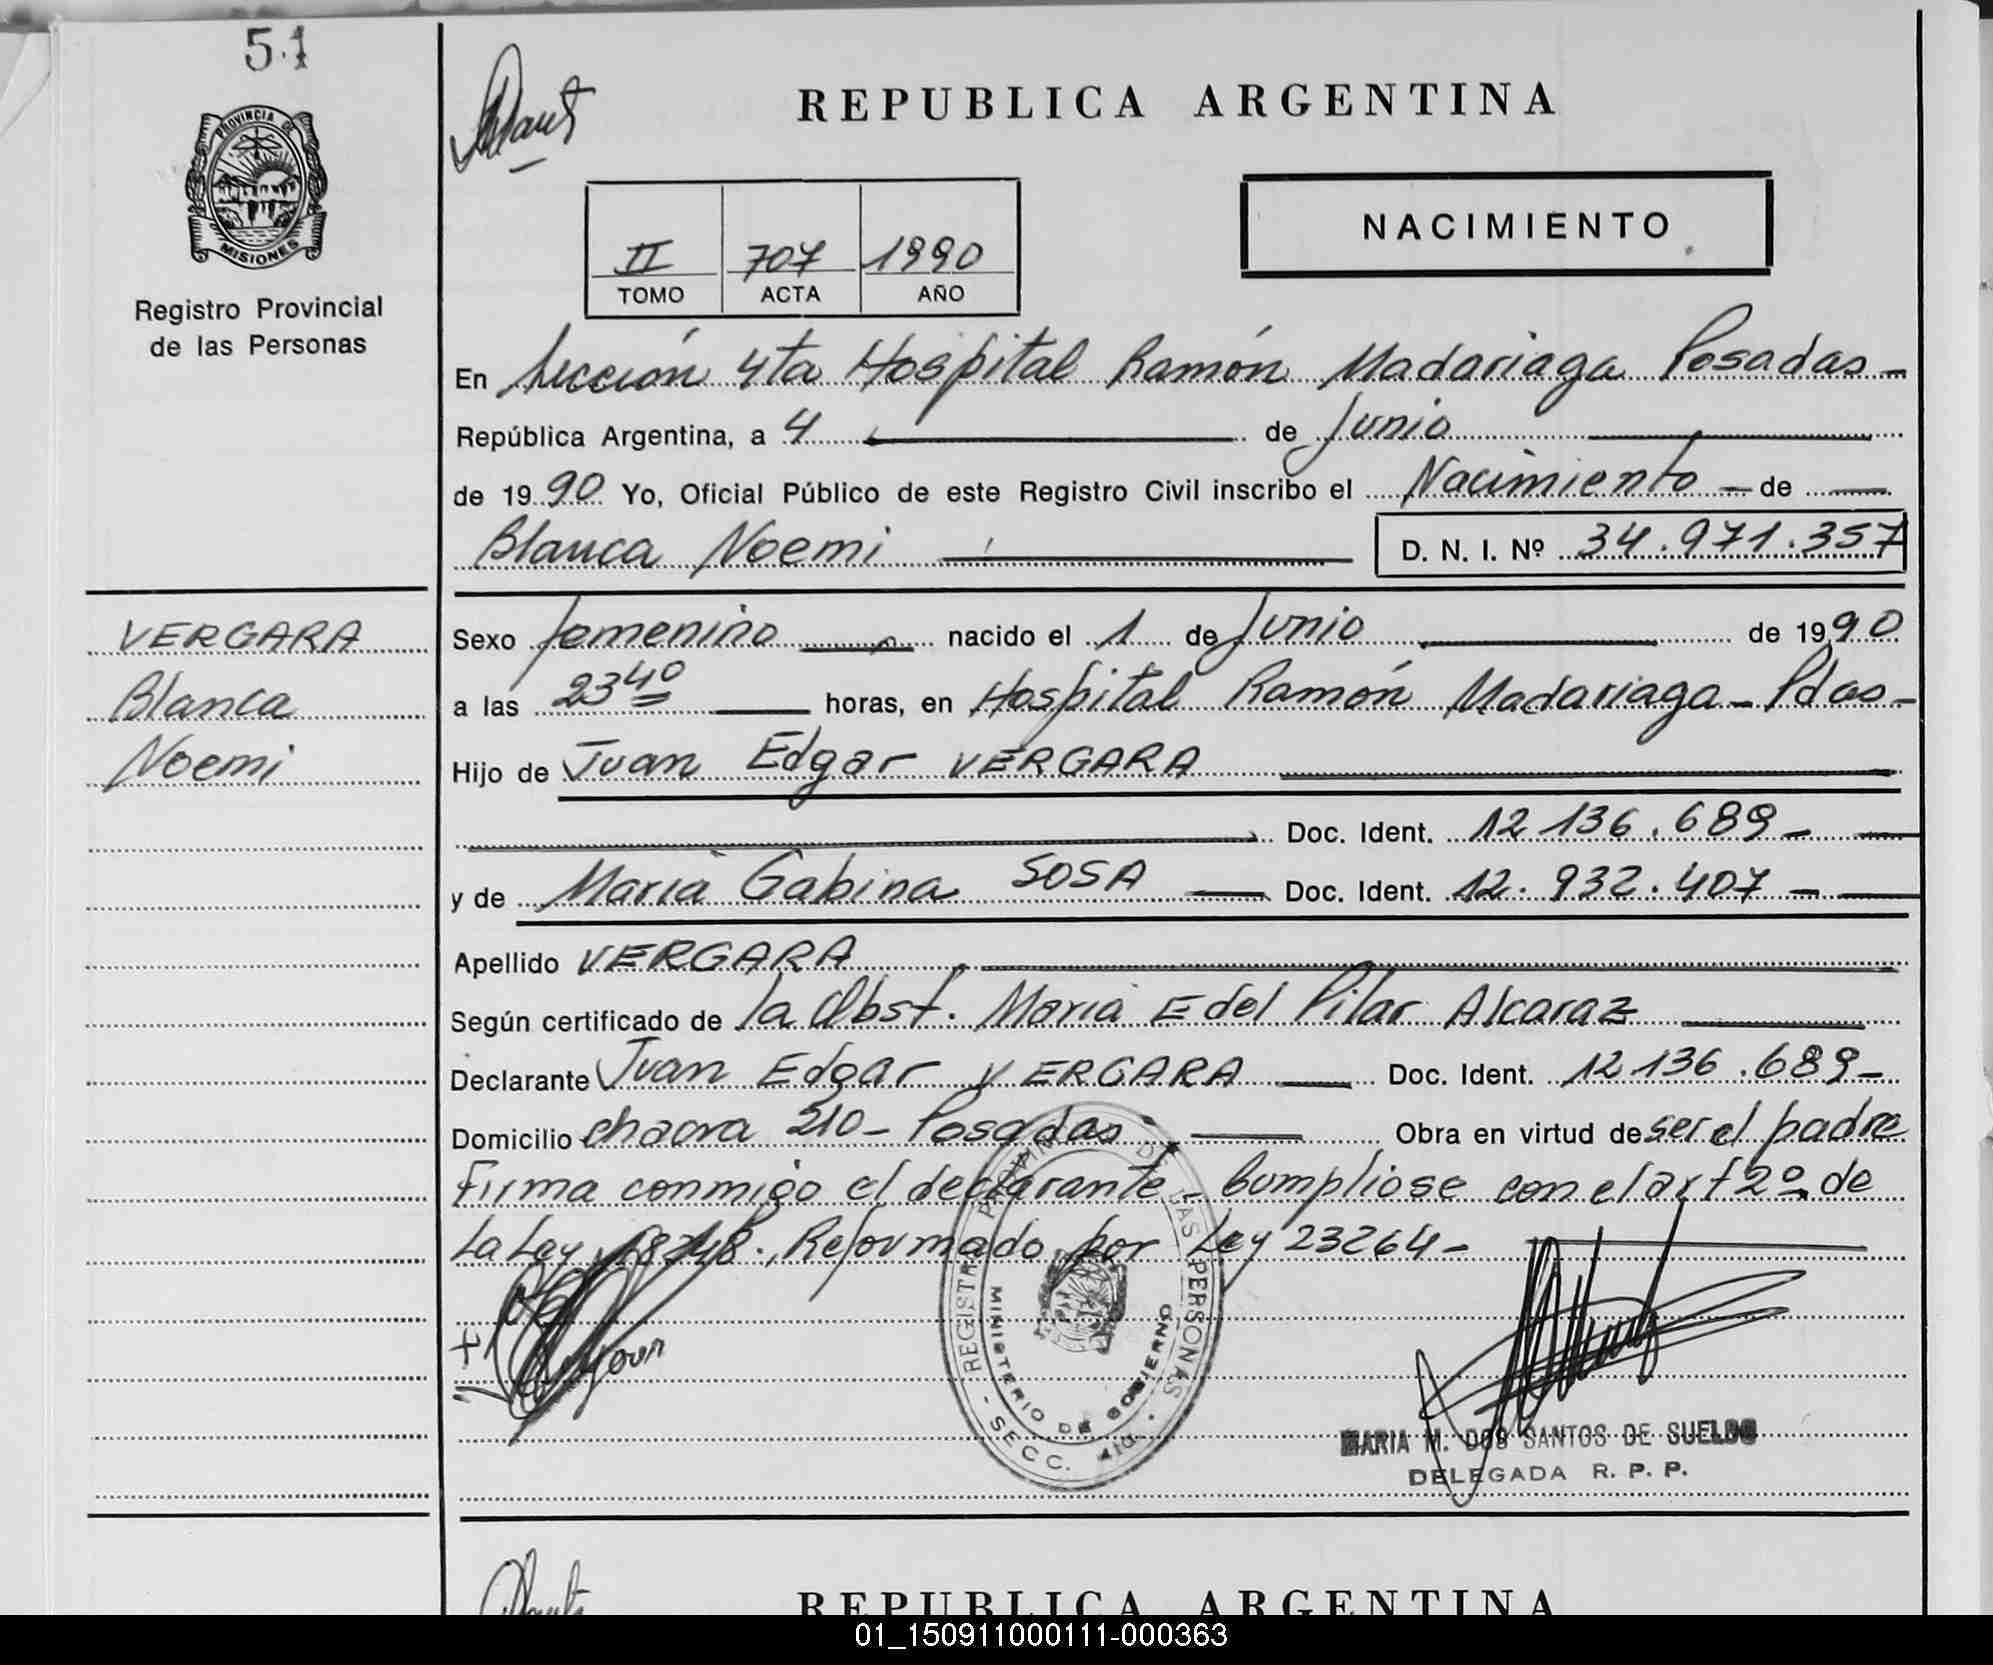 51
PROVINCIA DE
MISIONES
Registro Provincial
de las Personas
REPUBLICA ARGENTINA
NACIMIENTO
II 707 1990
TOMO ACTA AÑO
En Sección 4ta Hospital Ramón Madariaga Posadas -
República Argentina, a 4 de Junio
de 1990 Yo, Oficial Público de este Registro Civil inscribo el Nacimiento - de
Blanca Noemi D. N. I. Nº 34.971.357
VERGARA
Blanca
Noemi
Sexo femenino nacido el 1 de Junio de 1990
a las 23 40 horas, en Hospital Ramón Madariaga - Pdas -
Hijo de Juan Edgar VERGARA
Doc. Ident. 12 136.689 -
y de Maria Gabina SOSA Doc. Ident. 12.932.407 -
Apellido VERGARA
Según certificado de la Obst. Maria E del Pilar Alcaraz
Declarante Juan Edgar VERGARA Doc. Ident. 12 136.689 -
Domicilio chacra 210 - Posadas Obra en virtud de ser el padre
Firma conmigo el declarante - Cumpliose con el art 2º de
La Ley 18248., Reformado por Ley 23264 -
REGISTRO PROVINCIAL DE LAS PERSONAS
MINISTERIO DE GOBIERNO
SECC. 4ta.
MARIA M. DOS SANTOS DE SUELDO
DELEGADA R. P. P.
REPUBLICA ARGENTINA
01_150911000111-000363